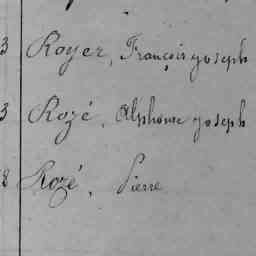 3 Royer, François joseph
3 Rozé, Alphonse joseph
8 Rozé, Pierre